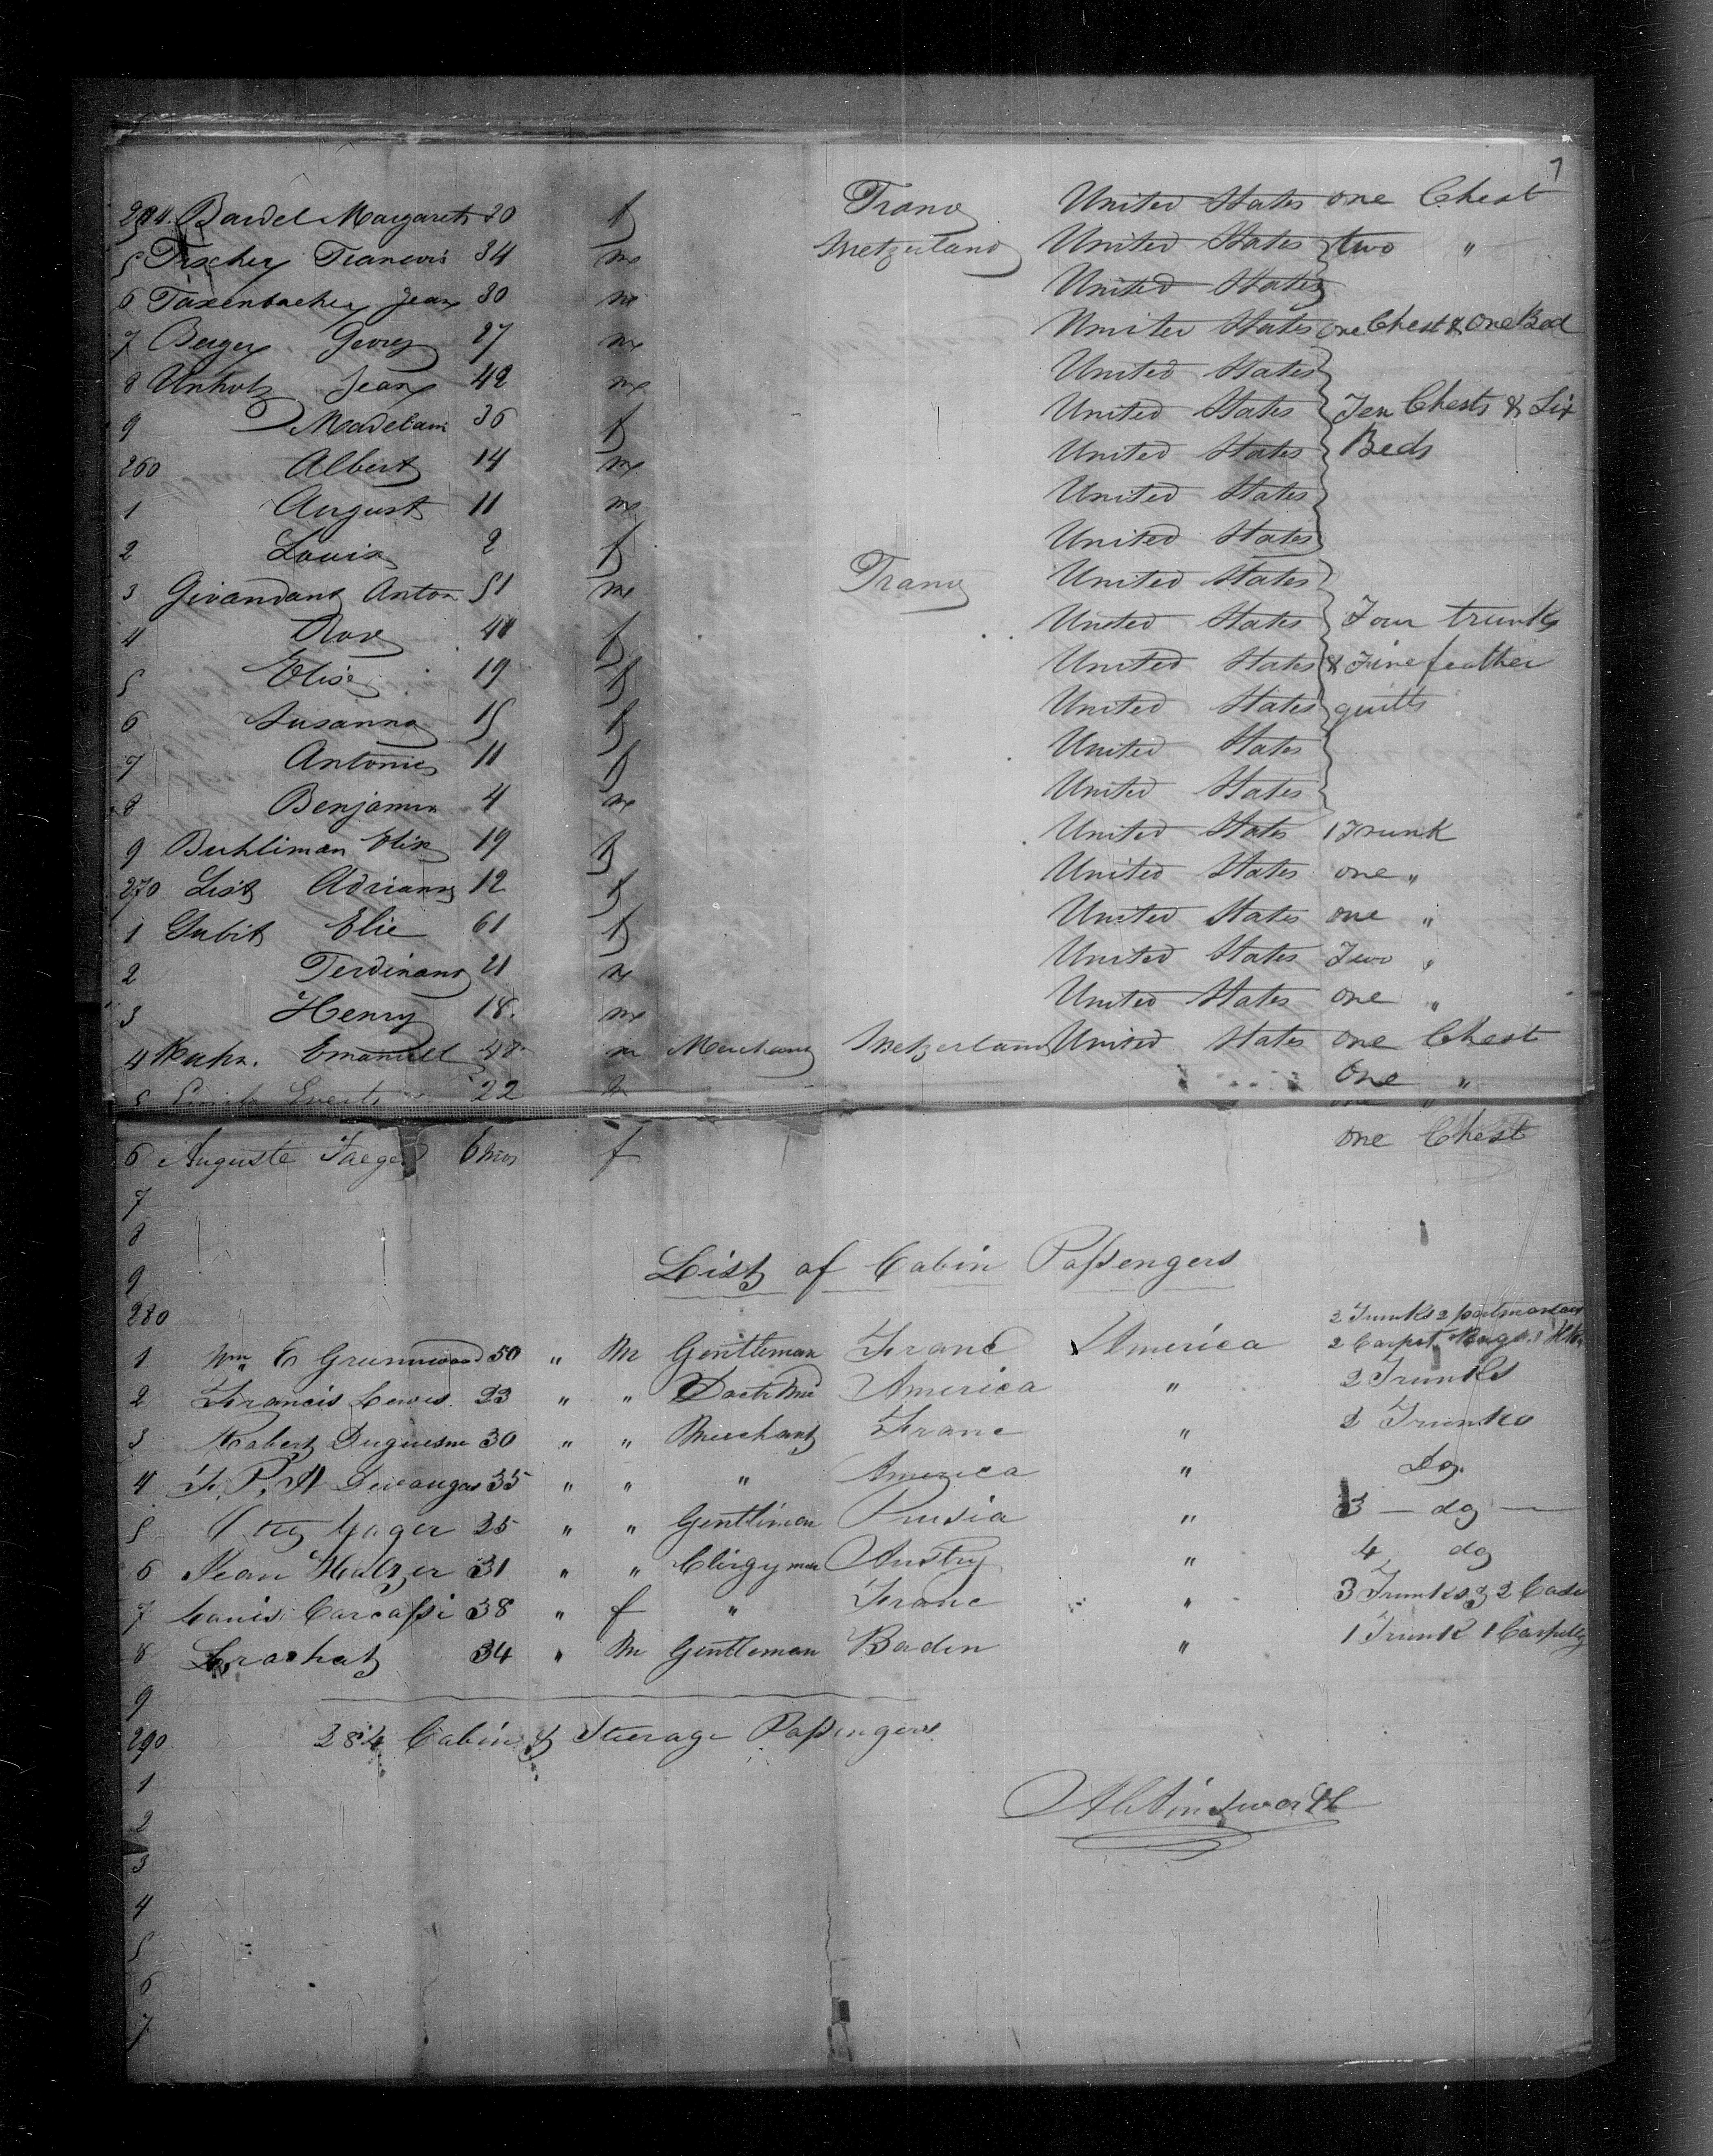 7
254. Bardel Margareth 30 f Franc United States one Chest
5 Fischer Francois 34 m Swetzerland United States two "
6 Taxenbacher Jean 30 m United States
7 Berger Georg 27 m United States one Chest & one Bed
8 Unholz Jean 42 m United States
9 Madelain 36 f United States Ten Chests & Six
260 Albert 14 m United States Beds
1 August 11 m United States
2 Louis 2 f United States
3 Givandang Anton 51 m Franc United States
4 Rose 41 f United States Four trunks
5 Elise 19 f United States & Five feather
6 Susanna 15 f United States quilts
7 Antonie 11 f United States
8 Benjamin 4 m United States
9 Buhliman Elis 19 f United States 1 Trunk
270 List Adrianna 12 f United States one "
1 Gubit Elie 61 f United States one "
2 Ferdinand 21 m United States Two "
3 Henry 18. m United States one "
4 Kuhn. Emanuell 48 m Merchant Swetzerland United States one Chest
5 22 One "
one "
6 Auguste Jaeger 6 mos f one Chest
7
8
9
List of Cabin Passengers
280
2 Trunks 2 portmanteau
1 Wm E Grunnwood 50 " M Gentleman Franc America 2 Carpet Bags. 1
2 Francis Lewis. 23 " " Doctr America " 2 Trunks
3 Robert Duguesne 30 " " Merchant Franc " 2 Trunks
4 F. P. A Devaugas 35 " " " America " Do.
5 Yager 25 " " Gentleman Prusia " 3 - do -
6 Jean Halzer 31 " " Clergyman Austry " 4 do
7 Louis Carcassi 38 " f " Franc " 3 Trunks & 2
8 Brachat 34 " M Gentleman Baden " 1 Trunk 1
9
290 284 Cabin & Steerage Passengers.
1
Ainsworth
2
3
4
5
6
7